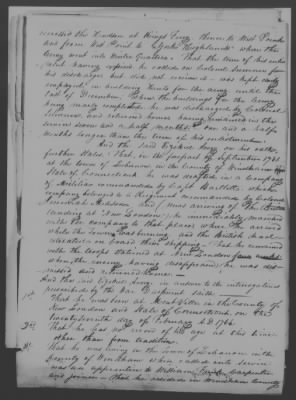 crossed the Hudson at Kings Ferry thence to West Point
and from West Point to Clyde's Heighlands where the
Army went into Winter Quarters. That the time of his enlist-
ment having expired he called on Colonel Sumner for
his discharge but did not receive it was kept
engaged in building Huts for the army until the
last of December. When the buildings for the Army
being nearly completed he was discharged by Colonel
and returned home having continued in the
service seven and a half months one and a half
months longer than the term of his enlistment
And the said Ezekiel Avery on his oath
further states. That, in the forepart of September 1781
at the town of Lebanon in the County of Windham
State of Connecticut he was drafted in a Company
of Militia commanded by Capt Bartlett, which
company belonged to a Regiment commanded by Colonel
Jeremiah and was of the British
landing at New London; he immediately marched
with the company to that place where he arrived
while the town was burning and the British had
on board their shipping. That he remained
with the troops stationed at New London
when the enemy having disappeared; he was
and returned home.
And the said Ezekiel Avery in answer to the interrogatories
prescribed by the War Department states
1st. That he was born at in the County of
New London and State of Connecticut, on the
day of February A.D. 1764
2d. That he has no record of his age at this time
other than from tradition.
3d. That he was living in the town of Lebanon in the
County of Windham when called into service
was an apprentice to William Carpenter
and joiner. That he resided in Windham County